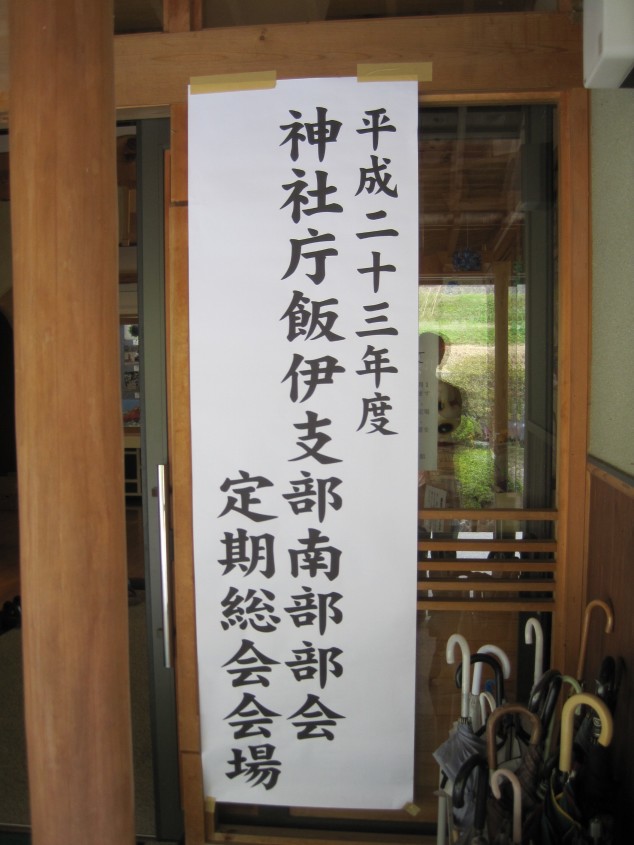 平成二十三年度
神社庁飯伊支部南部部会
定期総会会場